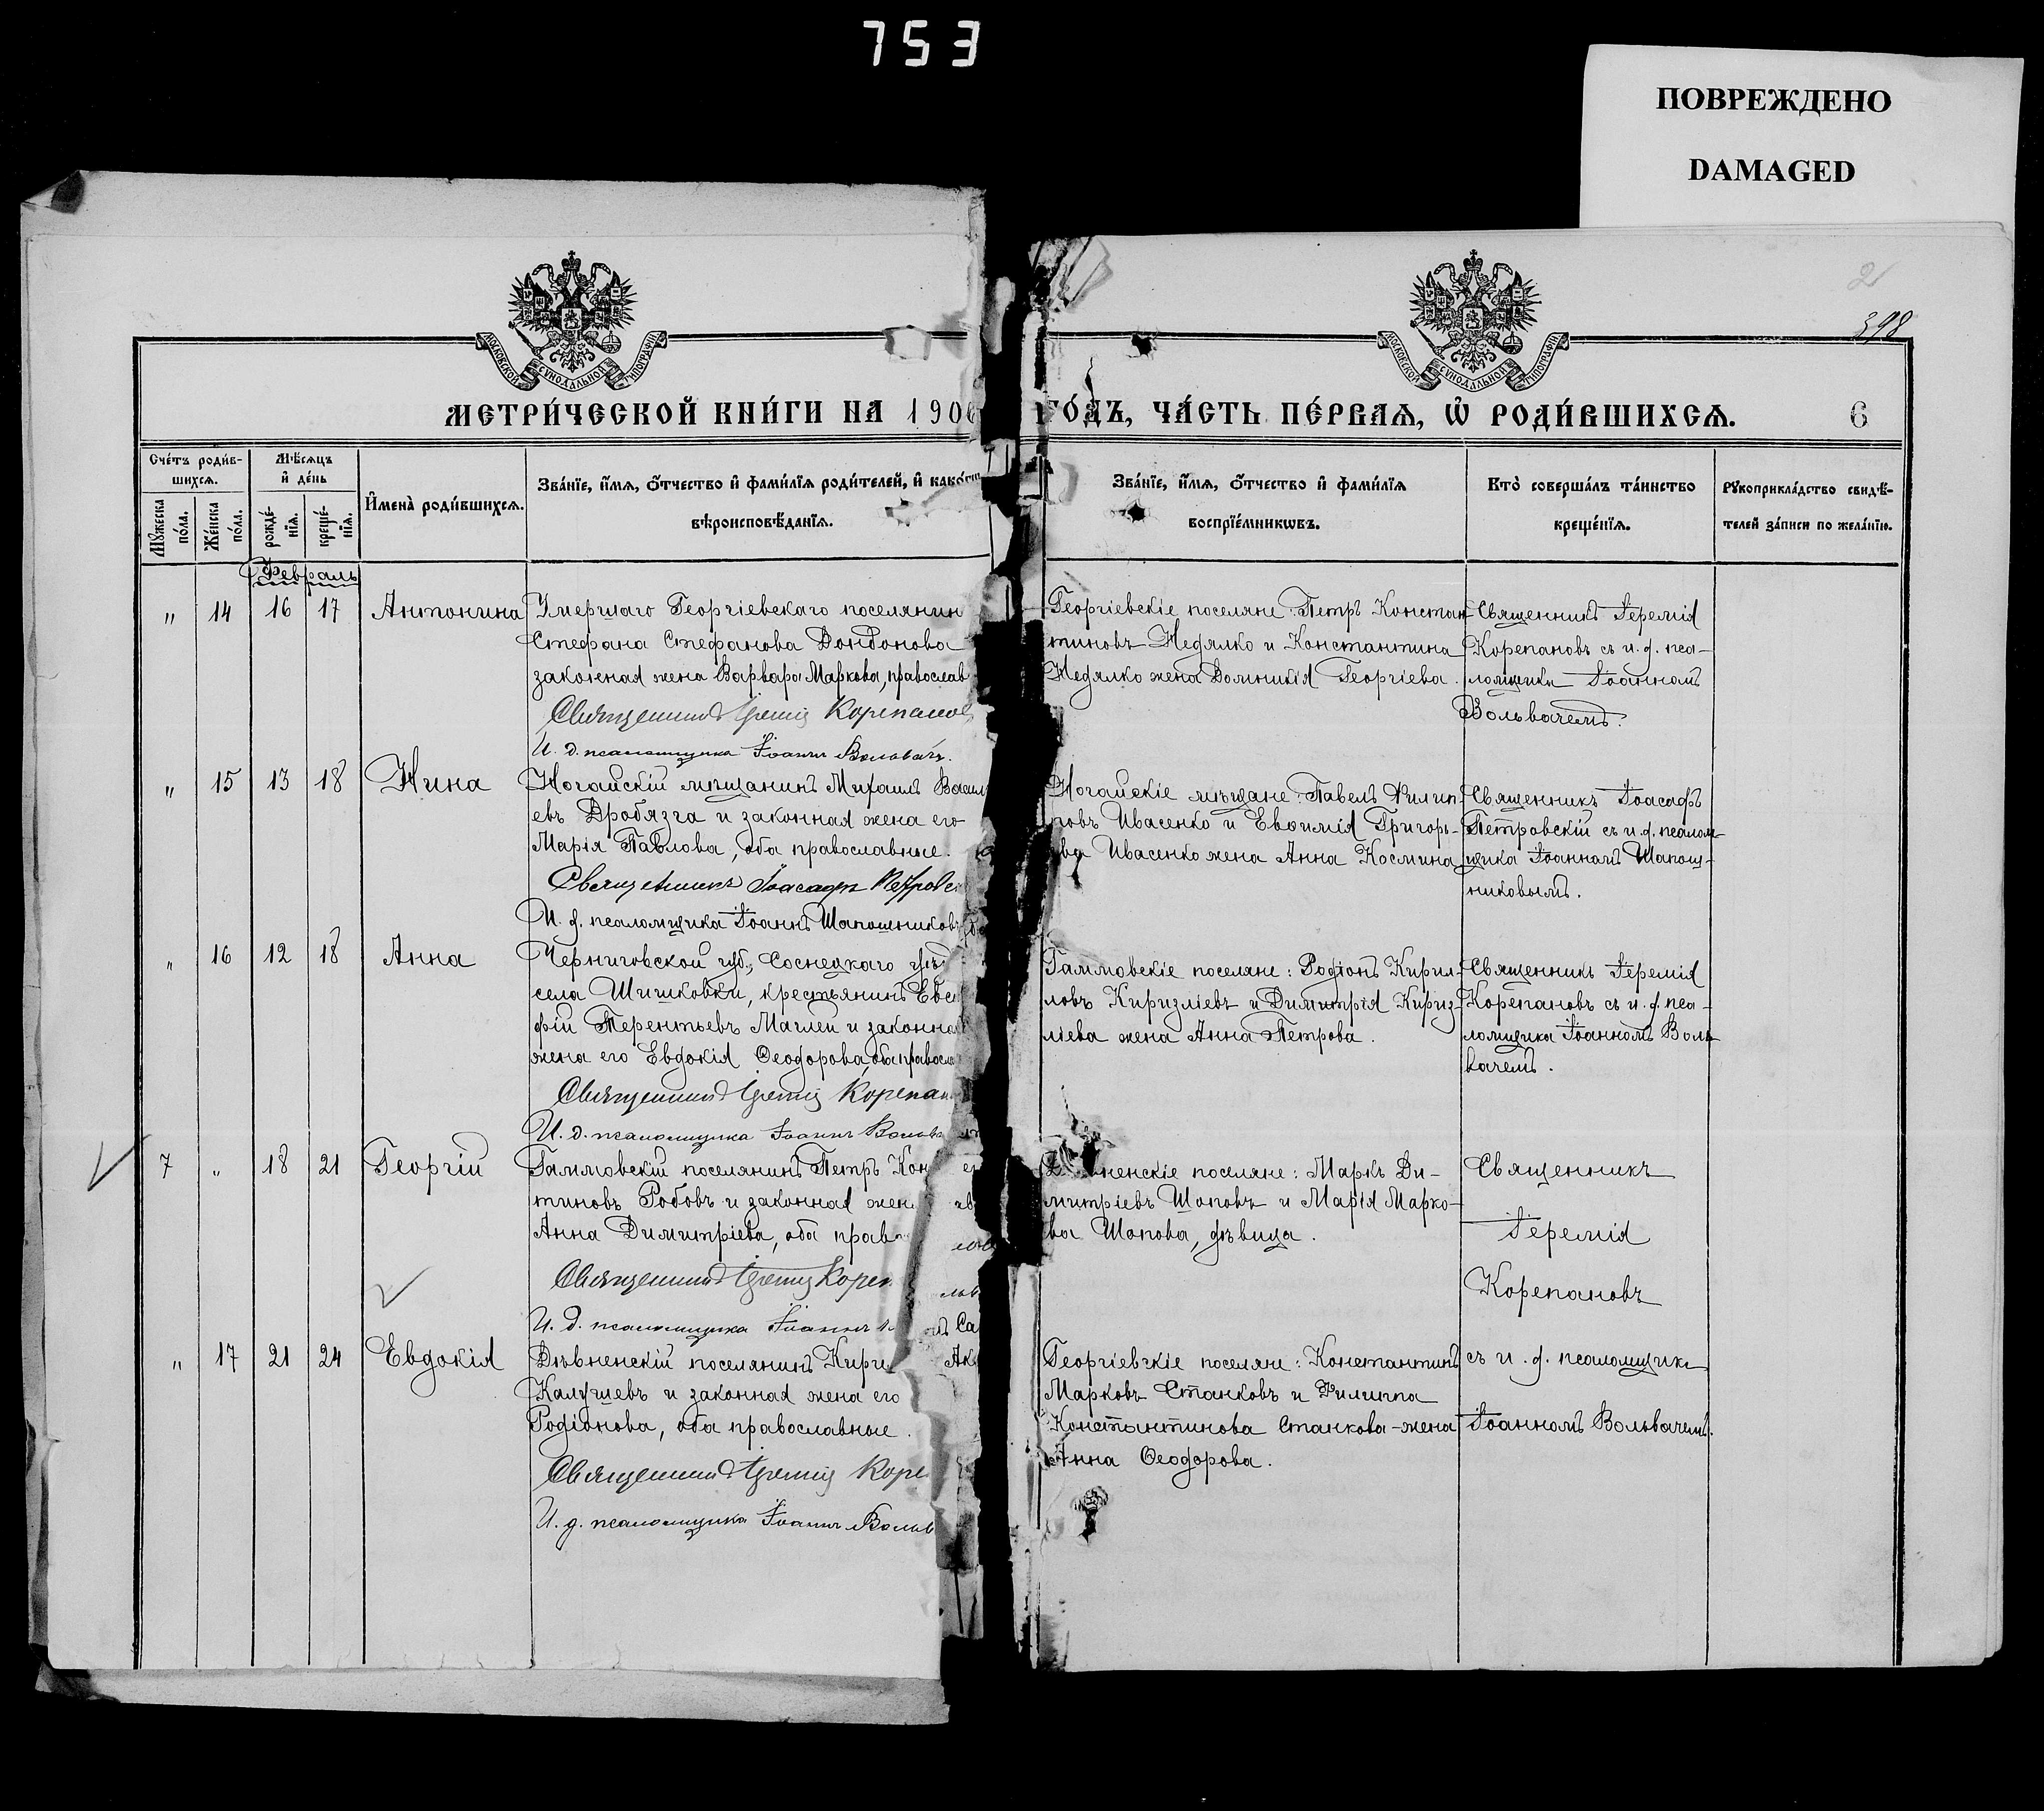 753
ПОВРЕЖДЕНО
DAMAGED
2
398
МОСКОВСКОЙ СѴНОДАЛЬНОЙ ТИПОГРАФІИ
МОСКОВСКОЙ СѴНОДАЛЬНОЙ ТИПОГРАФІИ
МЕТРИ́ЧЕСКОЙ КНИ́ГИ НА 190
ГО́ДЪ, ЧА́СТЬ ПЕ́РВАЯ, Ѽ РОДИ́ВШИХСЯ.
6
Сче́тъ роди́в-
шихся.
Мꙋжеска по́ла.
Же́нска по́ла.
Мѣ́сяцъ
и҆ де́нь
рожде́-
нїя.
креще́-
нїя.
И҆мена̀ роди́вшихся.
Зва́нїе, и҆́мя, ѻ҆́тчество и҆ фами́лїя роди́телей, и҆ како́гѡ
вѣроисповѣ́данїя.
Зва́нїе, и҆́мя, ѻ҆́тчество и҆ фами́лїя
воспрїе́мникѡвъ.
Кто̀ соверша́лъ та́инство
креще́нїя.
Рꙋкоприкла́дство свидѣ́-
телей за́писи по жела́нїю.
Февраль
" 14 16 17 Антонина
Умершаго Георгіевскаго поселянин
Стефана Стефанова Дондонова
законная жена Варвара Маркова, православ
Священникъ Іеремія Корепанов
И. д. псаломщика Іоаннъ Вольвачъ.
Георгіевскіе поселяне: Петръ Констан
тиновъ Недялко и Константина
Недялко жена Домникія Георгіева.
Священникъ Іеремія
Корепановъ съ и. д. пса-
ломщика Іоанномъ
Вольвачемъ.
" 15 13 18 Нина
Ногайскій мѣщанинъ Михаилъ Васил
евъ Дробязга и законная жена его
Марія Павлова, оба православные.
Священникъ Іоасафъ Петровс
И. д. псаломщика Іоаннъ Шапошниковъ
Ногайскіе мѣщане: Павелъ Филип
повъ Ивасенко и Евѳимія Григорь-
ва Ивасенко жена Анна Космина
Священникъ Іоасафъ
Петровскій съ и. д. псалом-
щика Іоанномъ Шапош-
никовымъ.
" 16 12 18 Анна
Черниговской губ., Соснецкаго уѣз
села Шишковки, крестьянинъ Евс
фій Терентьевъ Маглей и законна
жена его Евдокія Ѳеодорова, оба правосл
Священникъ Іеремія Корепан
И. д. псаломщика Іоаннъ Вольв
Гаммовскіе поселяне: Родіонъ Кирил-
ловъ Киризліевъ и Димитрія Кириз-
ліева жена Анна Петрова.
Священникъ Іеремія
Корепановъ съ и. д. пса-
ломщика Іоанномъ Воль-
вачемъ.
7 " 18 21 Георгій
Гаммовскій поселянинъ Петръ Кон
тиновъ Робовъ и законная жен
Анна Димитріева, оба прав
Священникъ Іеремія Корен
И. д. псаломщика Іоаннъ
ненскіе поселяне: Маркъ Ди-
митріевъ Шоповъ и Марія Марко-
ва Шопова, дѣвица.
Священникъ
Іеремія
Корепановъ
" 17 21 24 Евдокія
Дѣвненскій поселянинъ Кири
Калушевъ и законная жена его
Родіонова, оба православные.
Священникъ Іеремія Коре
И. д. псаломщика Іоаннъ Вольв
Са
Ак
Георгіевскіе поселяне: Константинъ
Марковъ Станковъ и Филиппа
Константинова Станкова-жена
Анна Ѳеодорова.
съ и. д. псаломщика
Іоанномъ Вольвачемъ.